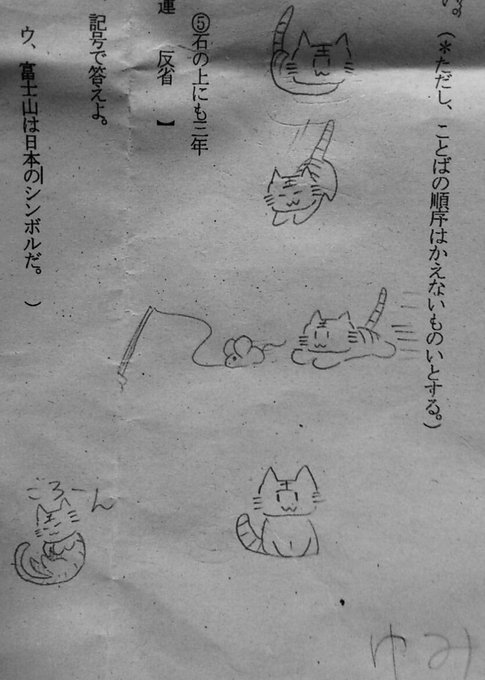 す。
(＊ただし、ことばの順序はかえないものいとする。)
⑤石の上にも三年
運 反省 】
記号で答えよ。
ウ、富士山は日本のシンボルだ。 )
ごろーん
ゆみ